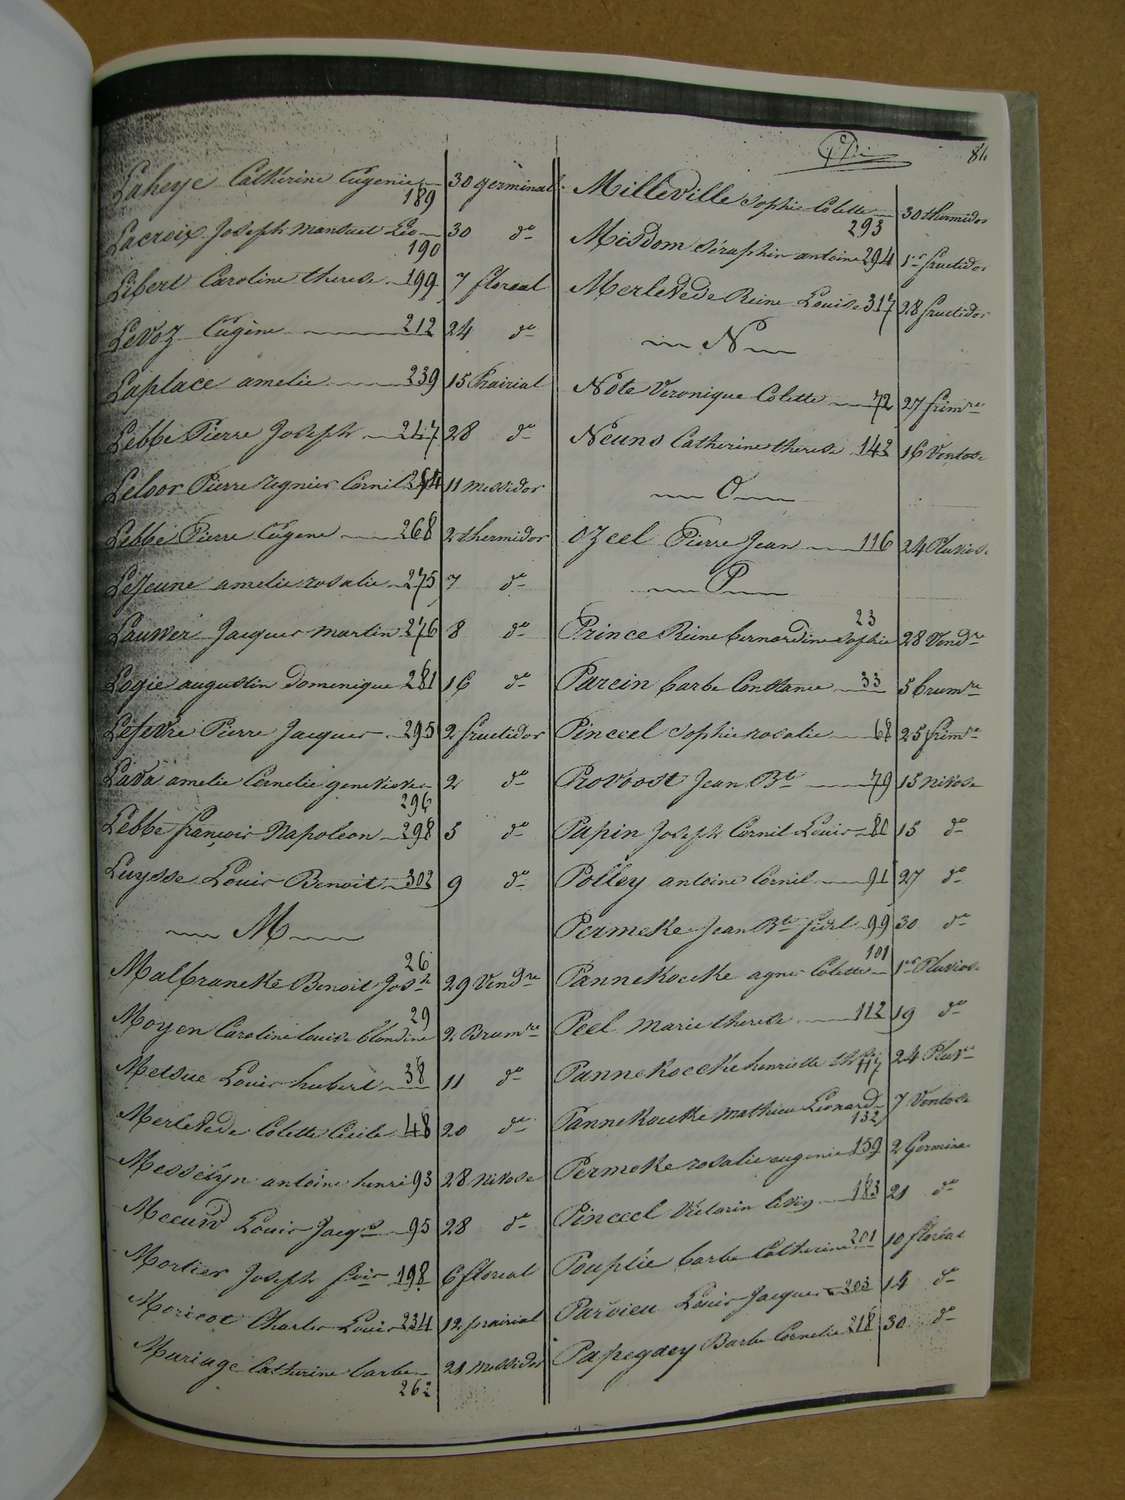 84
Laheye Catherine Eugenie 189 30 germinal
Lacroix Joseph mansuet Léo 190 30 do
Libert Caroline therese 199 7 floreal
Levoz Eugène 212 24 do
Laplace amelie 239 15 Prairial
Lebbe Pierre Joseph 247 28 do
Leloor Pierre regnier Cornil 11 Messidor
Lebbe Pierre Eugene 268 2 thermidor
LeJeune amelie rosalie 275 7 do
Lauwer Jacques martin 276 8 do
Logie augustin domenique 281 16 do
Lefevre Pierre Jacques 295 2 fructidor
Lava amelie Cornelie genevieve 296 2 do
Lebbe françois Napoleon 298 5 do
Luysse Louis Benoit 303 9 do
M
Malbrancke Benoit Josh 26 29 Vendre
Moyen Caroline louise blondine 29 2 Brumre
Metsue Louis hubert 38 11 do
Merlevede Colette Cecile 48 20 do
Messeiyn antoine henri 93 28 Nivose
Meeuw Louis Jacqs 95 28 do
Mortier Joseph fois 198 6 floreal
Moricot Charles Louis 234 12 prairial
Mariage Catherine barbe 262 21 Messidor
Milleville Sophie Colette 293 30 thermidor
Misdom Séraphin antoine 294 1er fructidor
Merlevede Reine Louise 317 28 fructidor
N
Note Veronique Colette 72 27 frimre
Neuns Catherine therese 142 16 Ventose
O
Ozeel Pierre Jean 116 24 Pluviose
P
Prince Reine bernardine Sophie 23 28 Vendre
Parein barbe Constance 33 5 brumre
Pinceel Sophie rosalie 68 25 frimre
Provoost Jean Bte 79 15 Nivose
Papin Joseph Cornil Louis 80 15 do
Polley antoine Cornil 91 27 do
Permeke Jean Bte fidel 99 30 do
Pannekoucke agnes Colette 101 1er Pluviose
Peel marie therese 112 19 do
Pannekoecke henriette 117 24 Pluvre
Pannekoucke mathieu Léonard 132 7 Ventose
Permeke rosalie eugenie 159 2 Germinal
Pinceel Victorin 183 21 do
Pouplie barbe Catherine 201 10 floreal
Parvieu Louis Jacques 203 14 do
Papegaey Barbe Cornelie 218 30 do